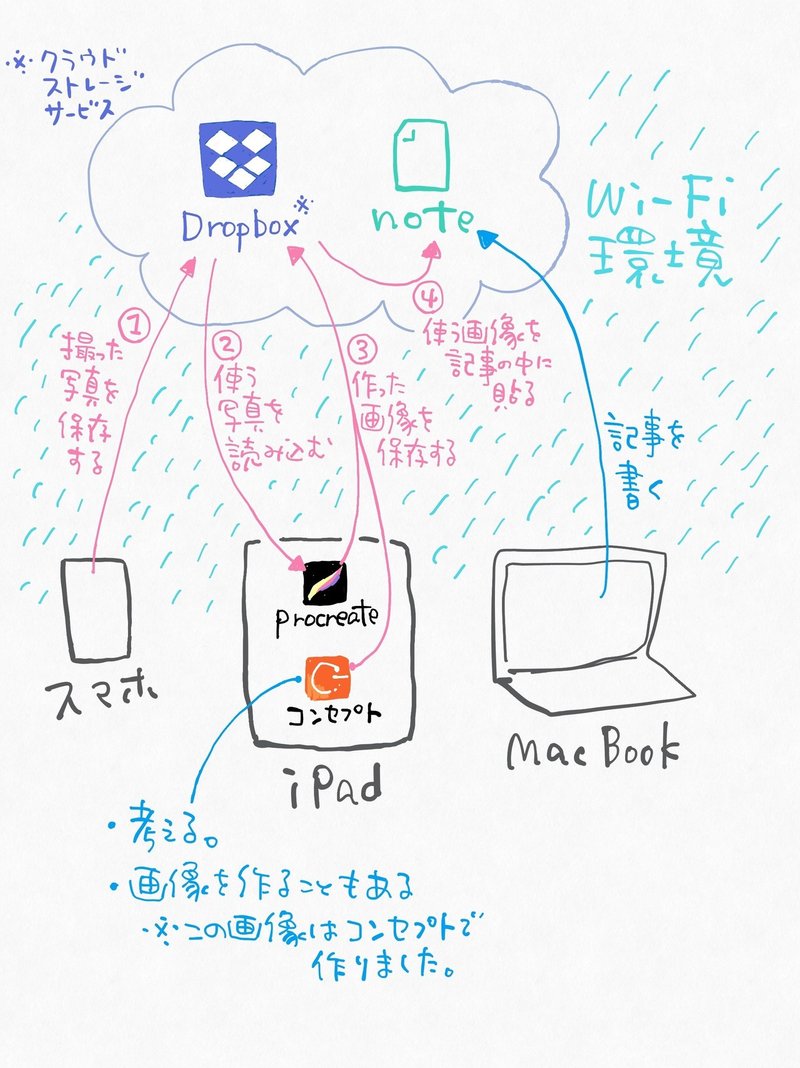 ※クラウド
ストレージ
サービス
Dropbox※
note
Wi-Fi
環境
①
撮った
写真を
保存
する
②
使う
写真を
読み込む
③
作った
画像を
保存する
④
使う画像を
記事の中に
貼る
記事を
書く
procreate
コンセプト
スマホ
iPad
MacBook
・考える。
・画像を作ることもある
※この画像はコンセプトで
作りました。